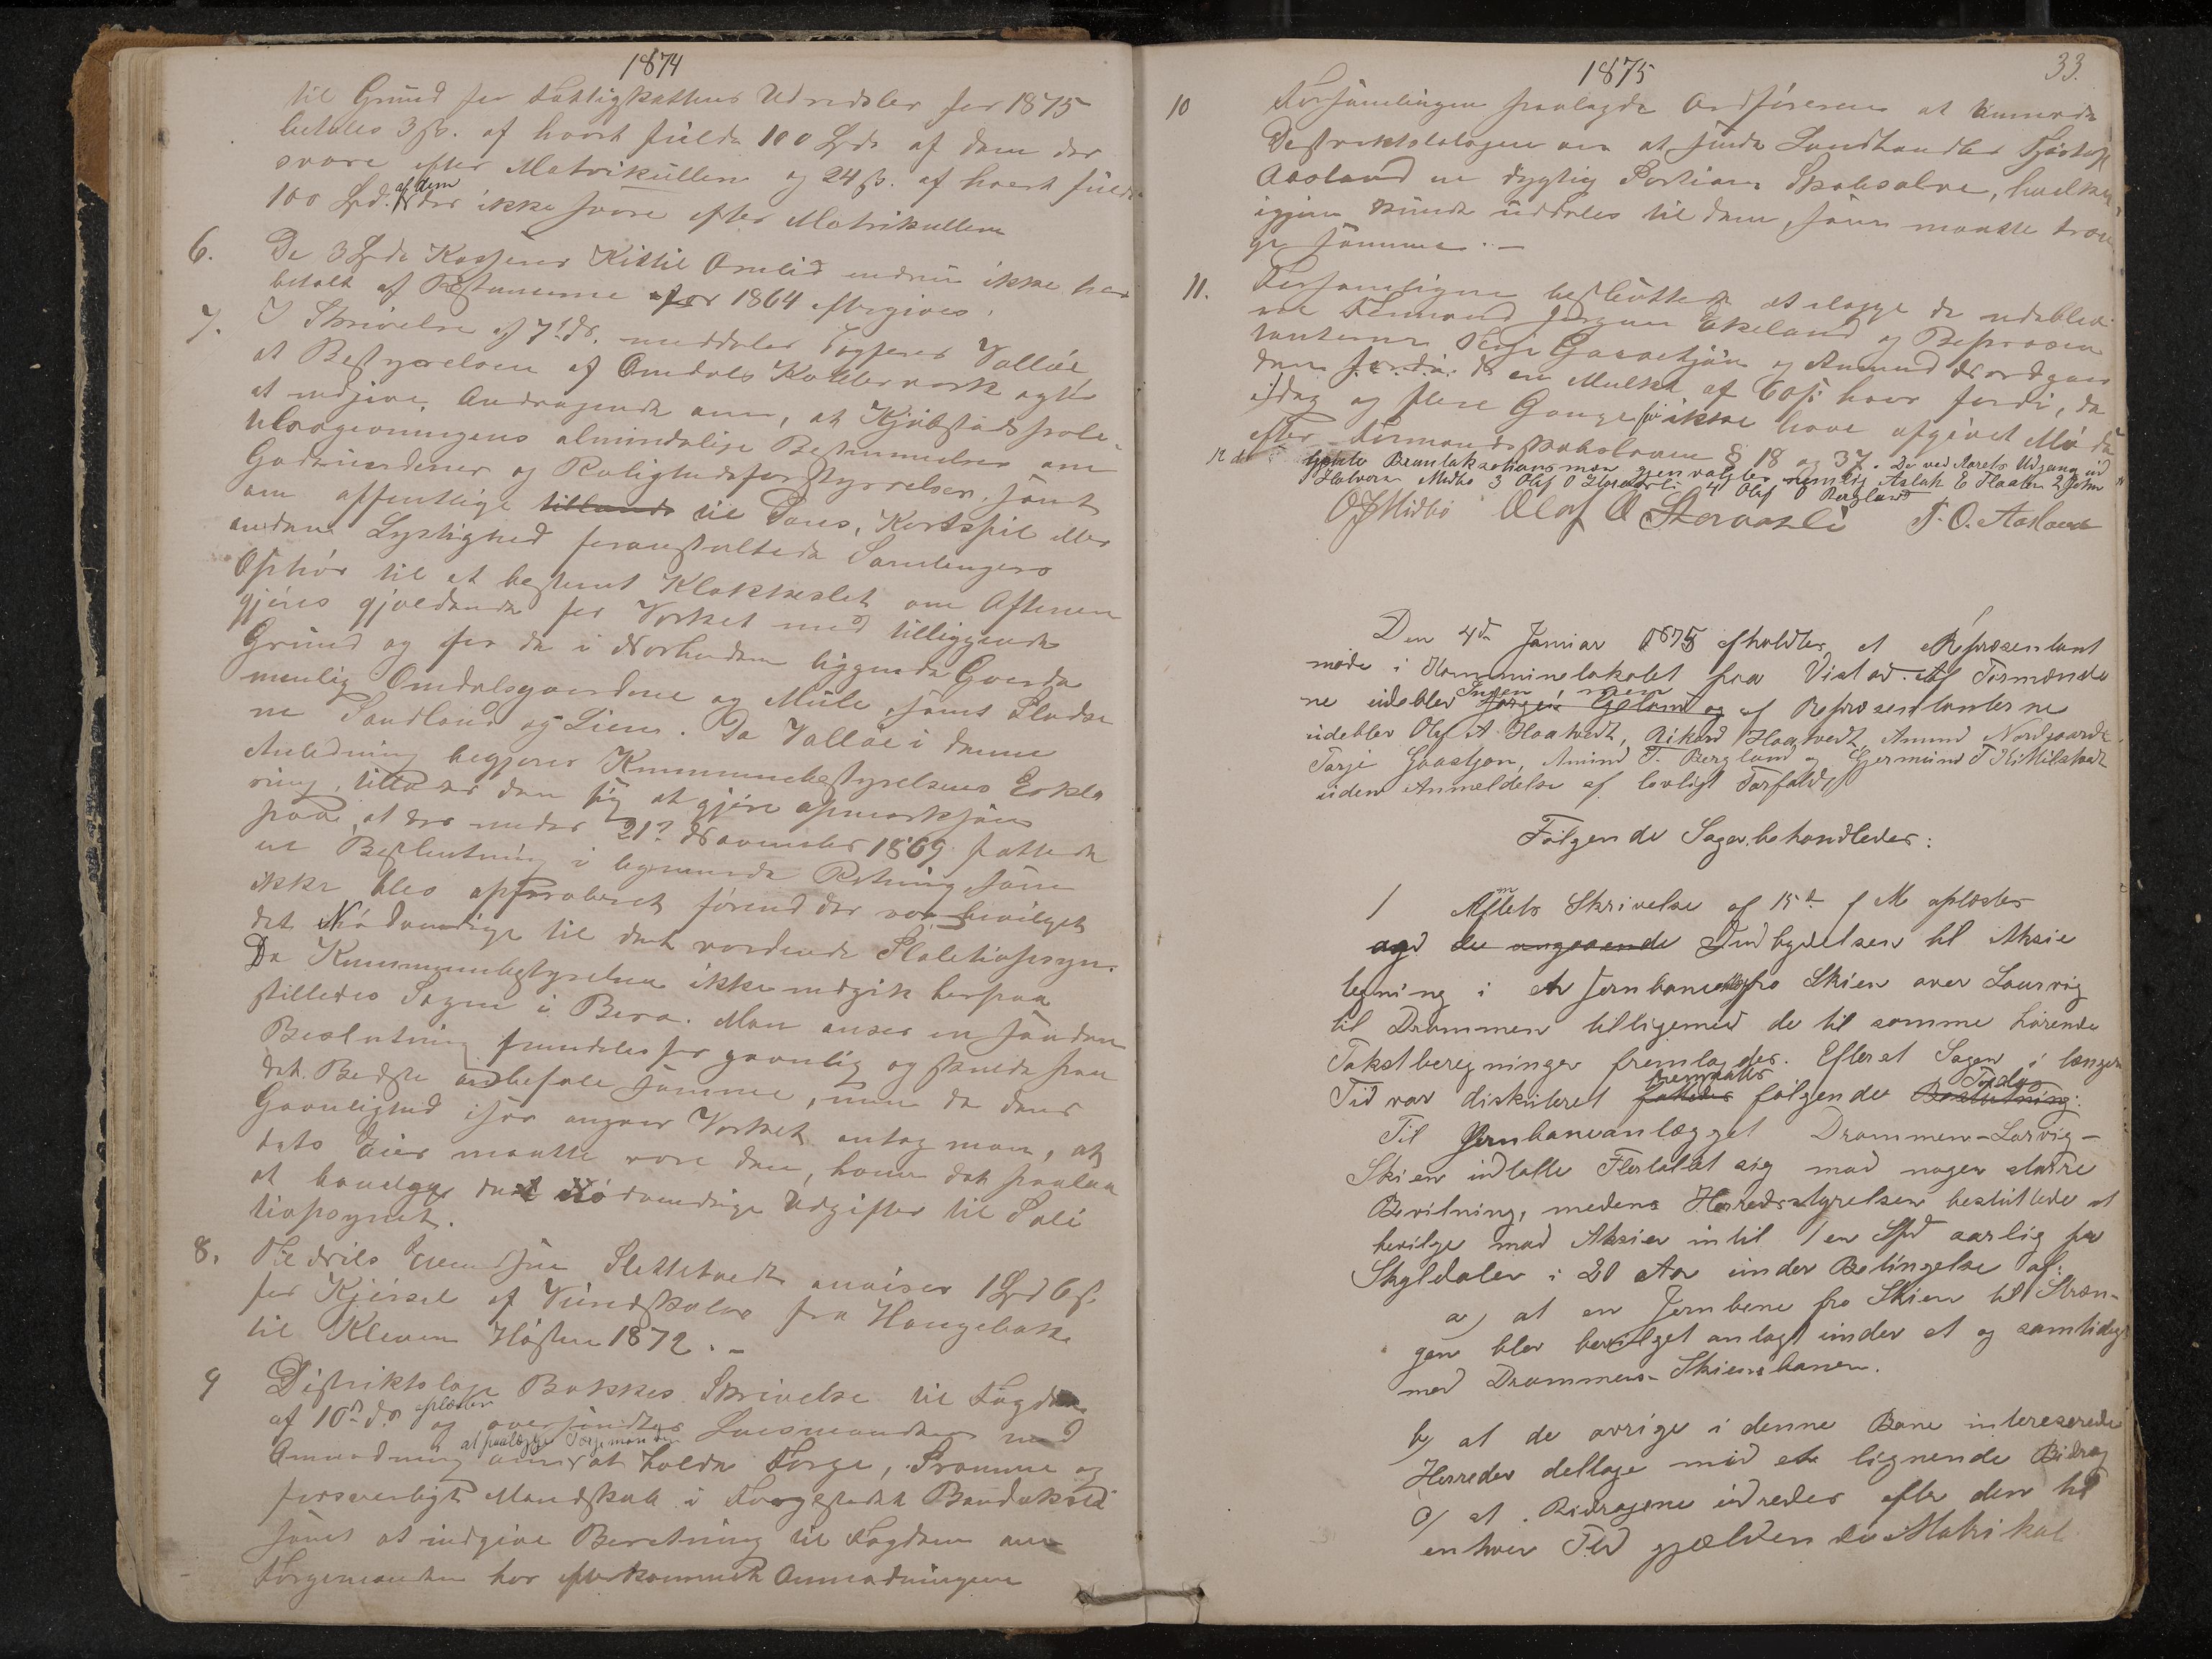 1874
til Grund for Fattigskattens Udredsler for 1875
betales 3 ß. af hvert fulde 100 Spd. af dem der
svare efter Matrikullen og 24 ß. af hvert fulde
100 Spd. af dem der ikke svare efter Matrikullen
6. De 3 Spd. Kasserer Kittil Omlid endnu ikke har
betalt af Restancerne for 1864 eftergives.
7. I Skrivelse af 7de ds. meddeler Ingeniør Valløe
at Bestyrelsen af Omdals Kobberværk agter
at indgive Andragende om, at Kjøbstadspoli-
tilovgivningens almindelige Bestemmelser om
Gadeuordener og Rolighedsforstyrrelser, samt
om offentlige tillands til Dans, Kortspil eller
anden Lystighed foranstaltede Samlingers
Ophør til et bestemt Klokkeslet om Aftenen
gjøres gjældende for Værket med tilliggende
Grund og for de i Nærheden liggende Gaarde
nemlig Omdalsgaardene og Mule, samt Pladse
ne Sandland og Lien. Da Valløe i denne
Anledning begjærer Kommunebestyrelsens Erklæ
ring, tillader den sig at gjøre opmærksom
paa, at der under 21de November 1869 fattede
en Beslutning i lignende Retning som
ikke blev approberet førend der var bevilget
det Nødvendige til det vordende Politiopsyn.
Da Kommunebestyrelsen ikke indgik herpaa
stilledes Sagen i Bero. Man anser en saadan
Beslutning fremdeles for gavnlig og skulde paa
det Bedste anbefale samme, men da dens
Gavnlighed især angaar Værket antog man, at
dets Eier maatte være den, hvem det paalaa
at bevilge de Nødvendige Udgifter til Poli
tiopsynet.
8. Til Nils Evensen Slettetvedt anvises 1 Spd 6 ß.
for Kjørsel af Vandskoler fra Haugebakke
til Kleven Høsten 1872. –
9 Distriktslæge Bakkes Skrivelse til Fogden
af 10de ds. oplæstes og oversendtes Lensmanden med
Anmodning om at paalægge Færgemanden at holde Færge, Pramme og
forsvarligt Mandskab i Færgestedet Bandaksli
samt at indgive Beretning til Fogden om
Færgemanden har efterkommet Anmodningen
1875
33.
10 Forsamlingen paalagde Ordføreren at anmode
Distriktslægen om at sende Landhandler Tjøstolf
Aasland en dygtig Portion Skabsalve, hvilken
igjen kunde uddeles til dem, som maatte træn
ge samme. –
11. Forsamligen besluttede at ilægge de udeblev
ne Formand Jørgen Ekeland og Repræsen
tanterne Terje Gaastjøn og Amund Nordgaar
den en Mulkt af 60 ß hver fordi, de
idag og flere Gange ikke have afgivet Møde
efter Formandskabsloven § 18 og 37.
12 De ved Aarets Udgang ud
gaaede Branttaksationsmænd gjenvalgtes nemlig Aslak E Flaaten 2 John
Halvorsen Midbø 3 Olaf O Skaraasli 4 Olaf O Bergland
O J Midbø Olaf O Skaraasli T. O. Aasland
Den 4de Januar 1875 afholdtes et Repræsentant
møde i Kommunelokalet paa Vistad. Af Formænde
ne udeblev Ingen, men Jørgen Egeland og af Repræsentanterne
udeblev Ole A. Hoatvedt, Rikard Hoatvedt, Amund Nordgaarde
Tarje Gaastjøn, Amund T. Bergland og Gjermund T Kittilstvedt
uden Anmeldelse af lovligt Forfald.
Følgende Sager behandledes:
1 Amtets Skrivelse af 15de f M oplæstes
og de angaaende Indbydelsen til Aksie
tegning i et Jernbaneanlæg fra Skien over Laurvig
til Drammen tilligemed de til samme hørende
Takstberegninger fremlagdes. Efterat Sagen i længere
Tid var diskuteret fattedes fremsattes følgende Beslutning: Forslag
Til Jernbaneanlægget Drammen–Larvig–
Skien udtalte Flertallet sig mod nogen større
Bevilning, medens Herredsstyrelsen besluttede at
bevilge mod Aksier intil 1 en Spd aarlig pr
Skyldaler i 20 Aar under Betingelse af:
a) at en Jernbane fra Skien til Stran-
gen blev bevilget anlagt under et og samtidigt
med Drammens-Skiensbanen.
b) at de øvrige i denne Bane intereserede
Herreder deltage med et lignende Bidrag
c) at Bidragene udredes efter den til
enhver Tid gjældende Matrikul